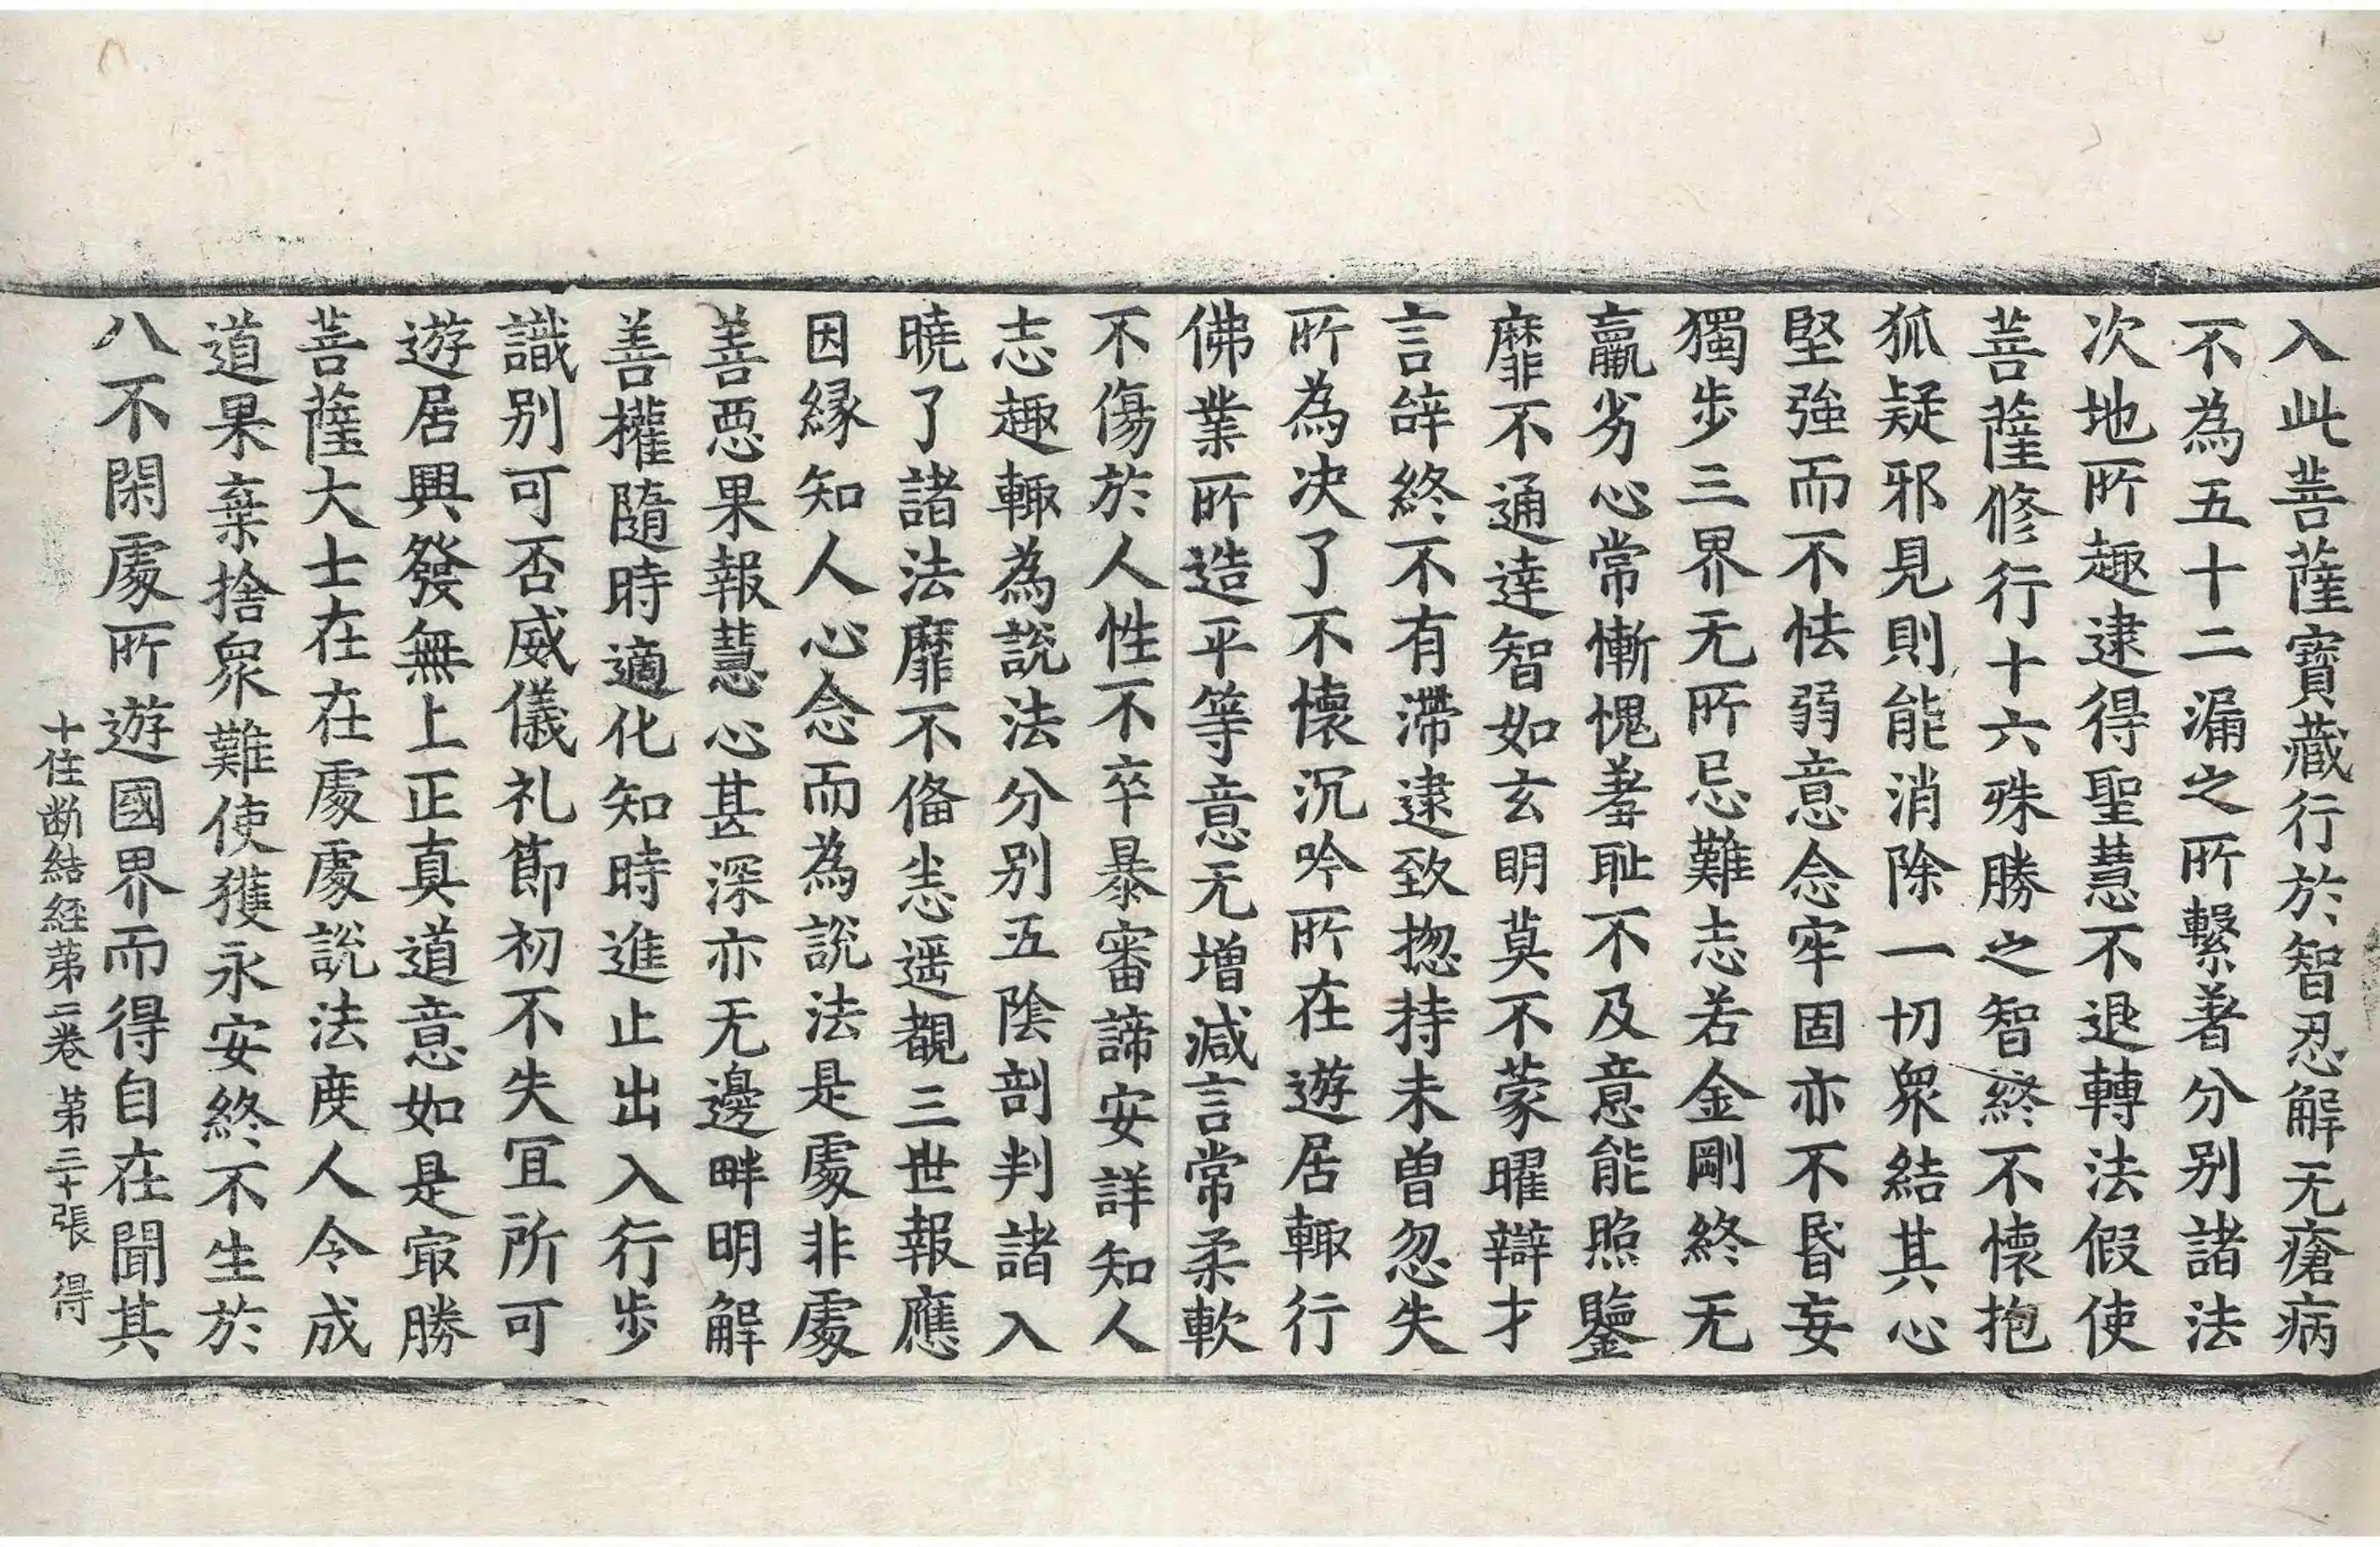 入此菩薩寶藏行於智忍解无瘡病
不為五十二漏之所繫著分別諸法
次地所趣逮得聖慧不退轉法假使
菩薩修行十六殊勝之智終不懷抱
狐疑邪見則能消除一切眾結其心
堅強而不怯弱意念牢固亦不昬妄
獨步三界无所忌難志若金剛終无
羸劣心常慚愧羞耻不及意能照鑒
靡不通達智如玄明莫不蒙曜辯才
言辝終不有滯逮致捴持未曽忽失
所為决了不懷沉吟所在遊居輙行
佛業所造平等意无增減言常柔軟
不傷於人性不卒暴審諦安詳知人
志趣輙為說法分別五陰剖判諸入
曉了諸法靡不俻悉遥覩三世報應
因縁知人心念而為說法是處非處
善惡果報慧心甚深亦无邊畔明解
善權隨時適化知時進止出入行步
識別可否威儀礼節初不失冝所可
遊居興發無上正真道意如是㝡勝
菩薩大士在在處處說法度人令成
道果棄捨眾難使獲永安終不生於
八不閑處所遊國界而得自在聞其
十住斷結経第二卷 第三十張 得